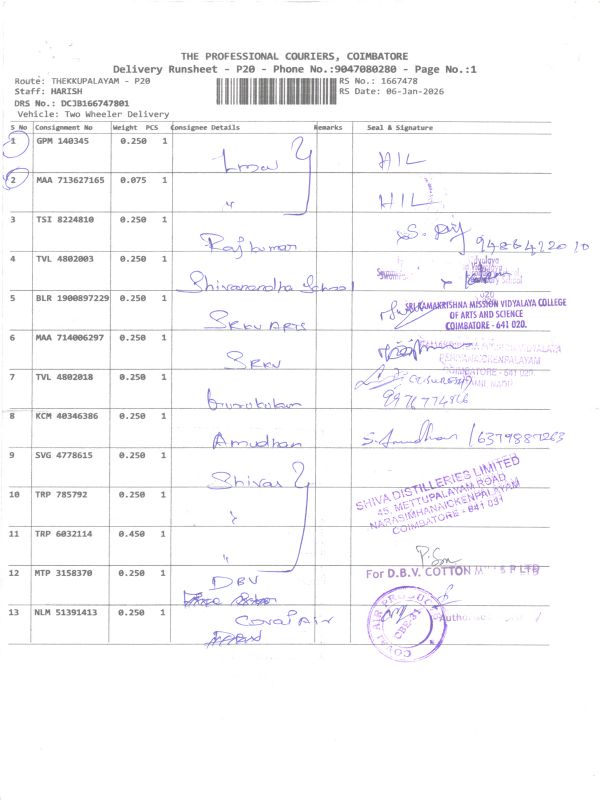 THE PROFESSIONAL COURIERS, COIMBATORE
Delivery Runsheet - P20 - Phone No.:9047080280 - Page No.:1
Route: THEKKUPALAYAM - P20 RS No.: 1667478
Staff: HARISH RS Date: 06-Jan-2026
DRS No.: DCJB166747801
Vehicle: Two Wheeler Delivery
S No Consignment No Weight PCS Consignee Details Remarks Seal & Signature
1 GPM 140345 0.250 1 HIL
2 MAA 713627165 0.075 1 " HIL
3 TSI 8224810 0.250 1 Rajkumar
4 TVL 4802003 0.250 1 Shivanandha School
5 BLR 1900897229 0.250 1 SRKV ARTS SRI RAMAKRISHNA MISSION VIDYALAYA COLLEGE
OF ARTS AND SCIENCE
COIMBATORE - 641 020.
6 MAA 714006297 0.250 1 SRKV
PERIYANAICKENPALAYAM
COIMBATORE - 641 020.
TAMIL NADU
7 TVL 4802018 0.250 1 Gurukulam
8 KCM 40346386 0.250 1 Amudhan S. Amudhan / 6379887263
9 SVG 4778615 0.250 1 Shiva
SHIVA DISTILLERIES LIMITED
45, METTUPALAYAM ROAD
NARASIMHANAICKENPALAYAM
COIMBATORE - 641 031
10 TRP 785792 0.250 1 "
11 TRP 6032114 0.450 1 "
12 MTP 3158370 0.250 1 DBV For D.B.V. COTTON
13 NLM 51391413 0.250 1 Covai Air
COVAI AIR PRODUCTS
CBE-31